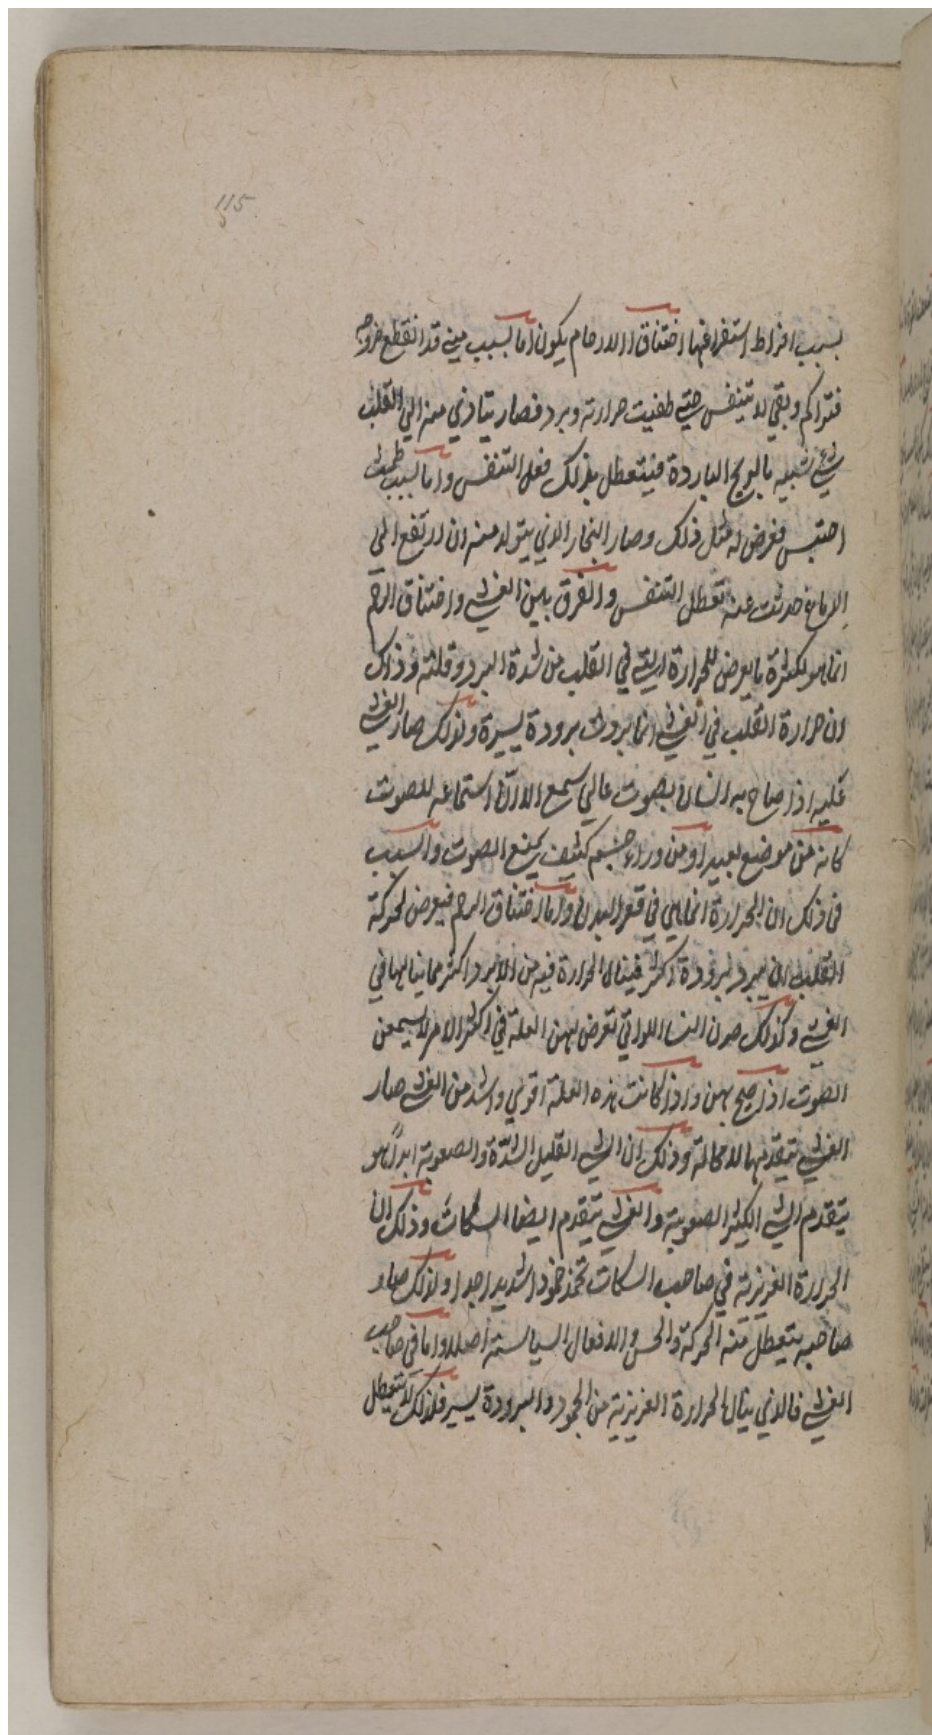 115
بسبب افراط استفراغها اختناق الارحام يكون اما لسبب مني قد انقطع خروجه
فتراكم وبقي لا يتنفس حتى طفيت حرارته وبرد فصار يتادي منه الي القلب
شيء شبيه بالريح الباردة فيتعطل بذلك فعل التنفس واما لسبب طمث
احتبس فعرض له مثل ذلك وصار البخار الذي يتولد منه ان ارتفع الي
الدماغ حدثت عنه تعطل التنفس والفرق بين الغشي واختناق الرحم
انما هو لكثرة ما يعرض للحرارة التي في القلب من شدة البرد وقلته وذلك
ان حرارة القلب في الغشي انما بردت برودة يسيرة ولذلك صار الغشي
عليه اذا صاح به انسان بصوت عالي سمع الا ان استماعه للصوت
كانه من موضع بعيد او من وراء جسم كثيف يمنع الصوت والسبب
في ذلك ان الحرارة انما هي في قعر البدن واما اختناق الرحم فيعرض لحركة
القلب ان يبرد برودة اكثر فينال الحرارة فيه من البرد اكثر مما ينالها في
الغشي وكذلك صرن النسا اللواتي تعرض لهن العلة في اكثر الامر لا يسمعن
الصوت اذا صيح بهن واذا كانت هذه العلة اقوي واشد من الغشي صار
الغشي يتقدمها لا محالة وذلك ان الشي القليل الشدة والصعوبة ابداً هو
يتقدم الشي الكثير الصعوبة والغشي يتقدم ايضا السكات وذلك ان
الحرارة الغريزية في صاحب السكات تخمد خمودا شديدا جدا ولذلك صار
صاحبه يتعطل منه الحركة والحس والافعال السياسية اصلا واما في صاحب
الغشي فالذي ينال الحرارة الغريزية من الجمود والبرودة يسير فلذلك لا يتعطل